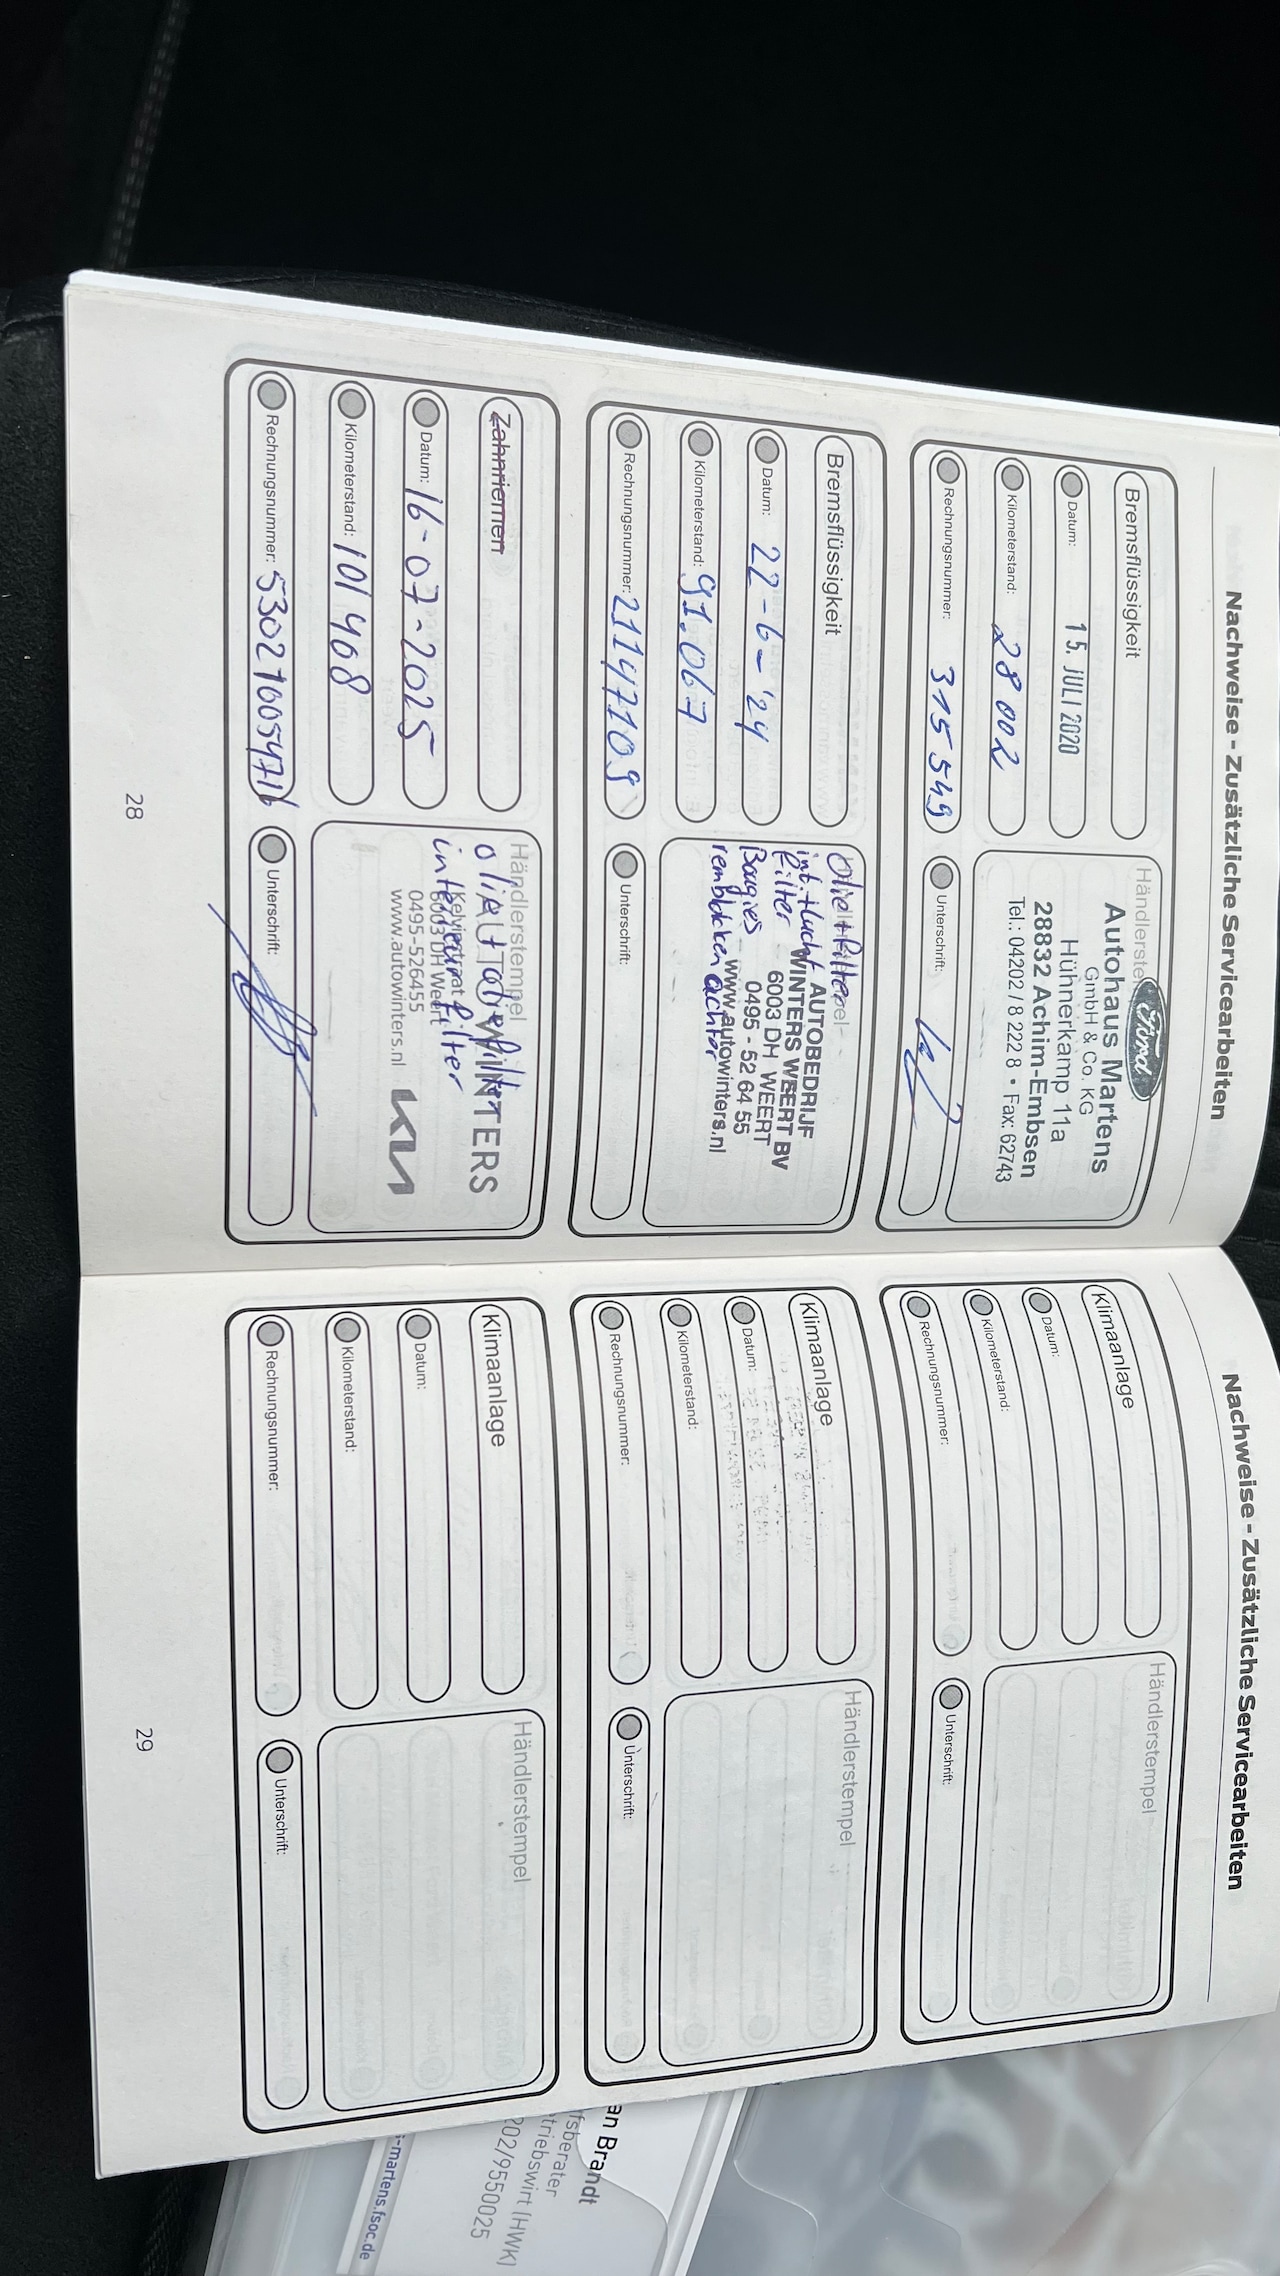 Nachweise - Zusätzliche Servicearbeiten
Bremsflüssigkeit
Datum: 15. JULI 2020
Kilometerstand: 28 002
Rechnungsnummer: 315 549
Händlerste
Ford
Autohaus Martens
GmbH & Co. KG
Hühnerkamp 11a
28832 Achim-Embsen
Tel.: 04202 / 8 222 8 • Fax: 62743
Unterschrift:
Bremsflüssigkeit
Datum: 22-6-'24
Kilometerstand: 91.067
Rechnungsnummer: 21147109
Olie + filter
int. + lucht
filter
Bougies
remblokken achter
AUTOBEDRIJF
WINTERS WEERT BV
6003 DH WEERT
0495 - 52 64 55
www.autowinters.nl
Unterschrift:
Zahnriemen
Datum: 16-07-2025
Kilometerstand: 101 408
Rechnungsnummer: 53021005471
Händlerstempel
olie + oliefilter
interieurfilter
AUTOWINTERS
6003 DH Weert
0495-526455
www.autowinters.nl
KIA
Unterschrift:
28
Nachweise - Zusätzliche Servicearbeiten
Klimaanlage
Datum:
Kilometerstand:
Rechnungsnummer:
Händlerstempel
Unterschrift:
Klimaanlage
Datum:
Kilometerstand:
Rechnungsnummer:
Händlerstempel
Unterschrift:
Klimaanlage
Datum:
Kilometerstand:
Rechnungsnummer:
Händlerstempel
Unterschrift:
29
an Brandt
fsberater
triebswirt (HWK)
202/9550025
s-martens.fsoc.de